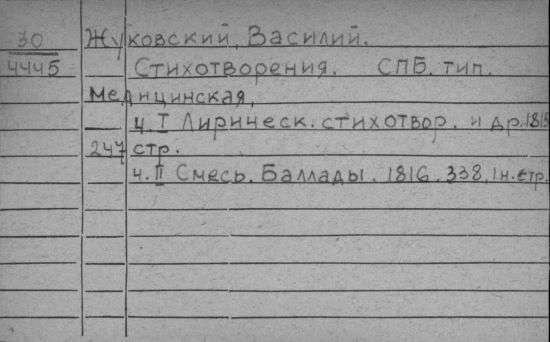 30
4445
Жуковский, Василий.
Стихотворения. СПБ. тип.
Медицинская,
ч. I Лирическ. стихотвор. и др. 1815
247 стр.
ч. II Смесь. Баллады. 1816. 338, 1 н. стр.